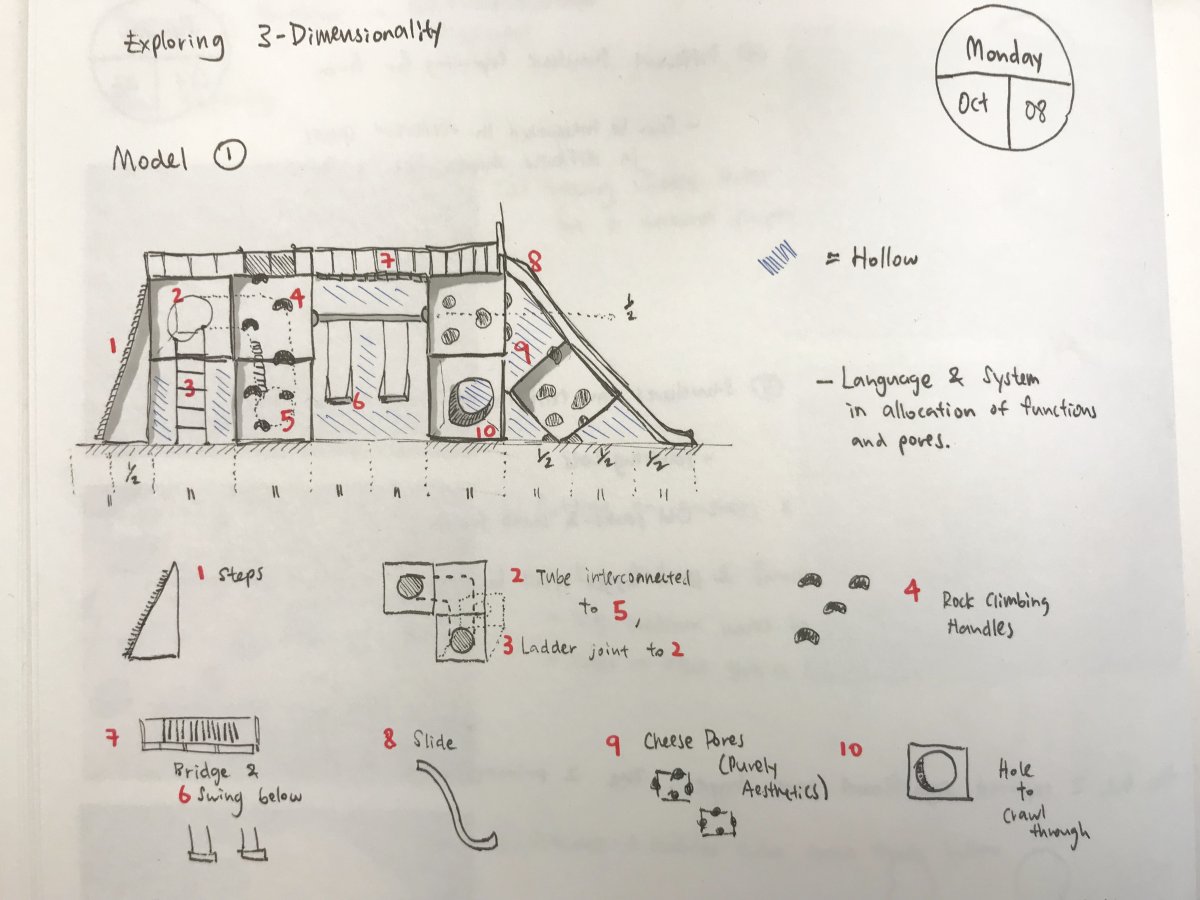 Exploring 3-Dimensionality
Monday
Oct 08
Model ①
= Hollow
- Language & System
in allocation of functions
and pores.
1
2
3
4
5
6
7
8
9
10
1/2
1/2
1/2
1/2
1/2
1 Steps
2 Tube interconnected
to 5,
3 Ladder joint to 2
4 Rock Climbing
Handles
7
Bridge &
6 Swing below
8 Slide
9 Cheese Pores
(Purely
Aesthetics)
10
Hole
to
Crawl
through